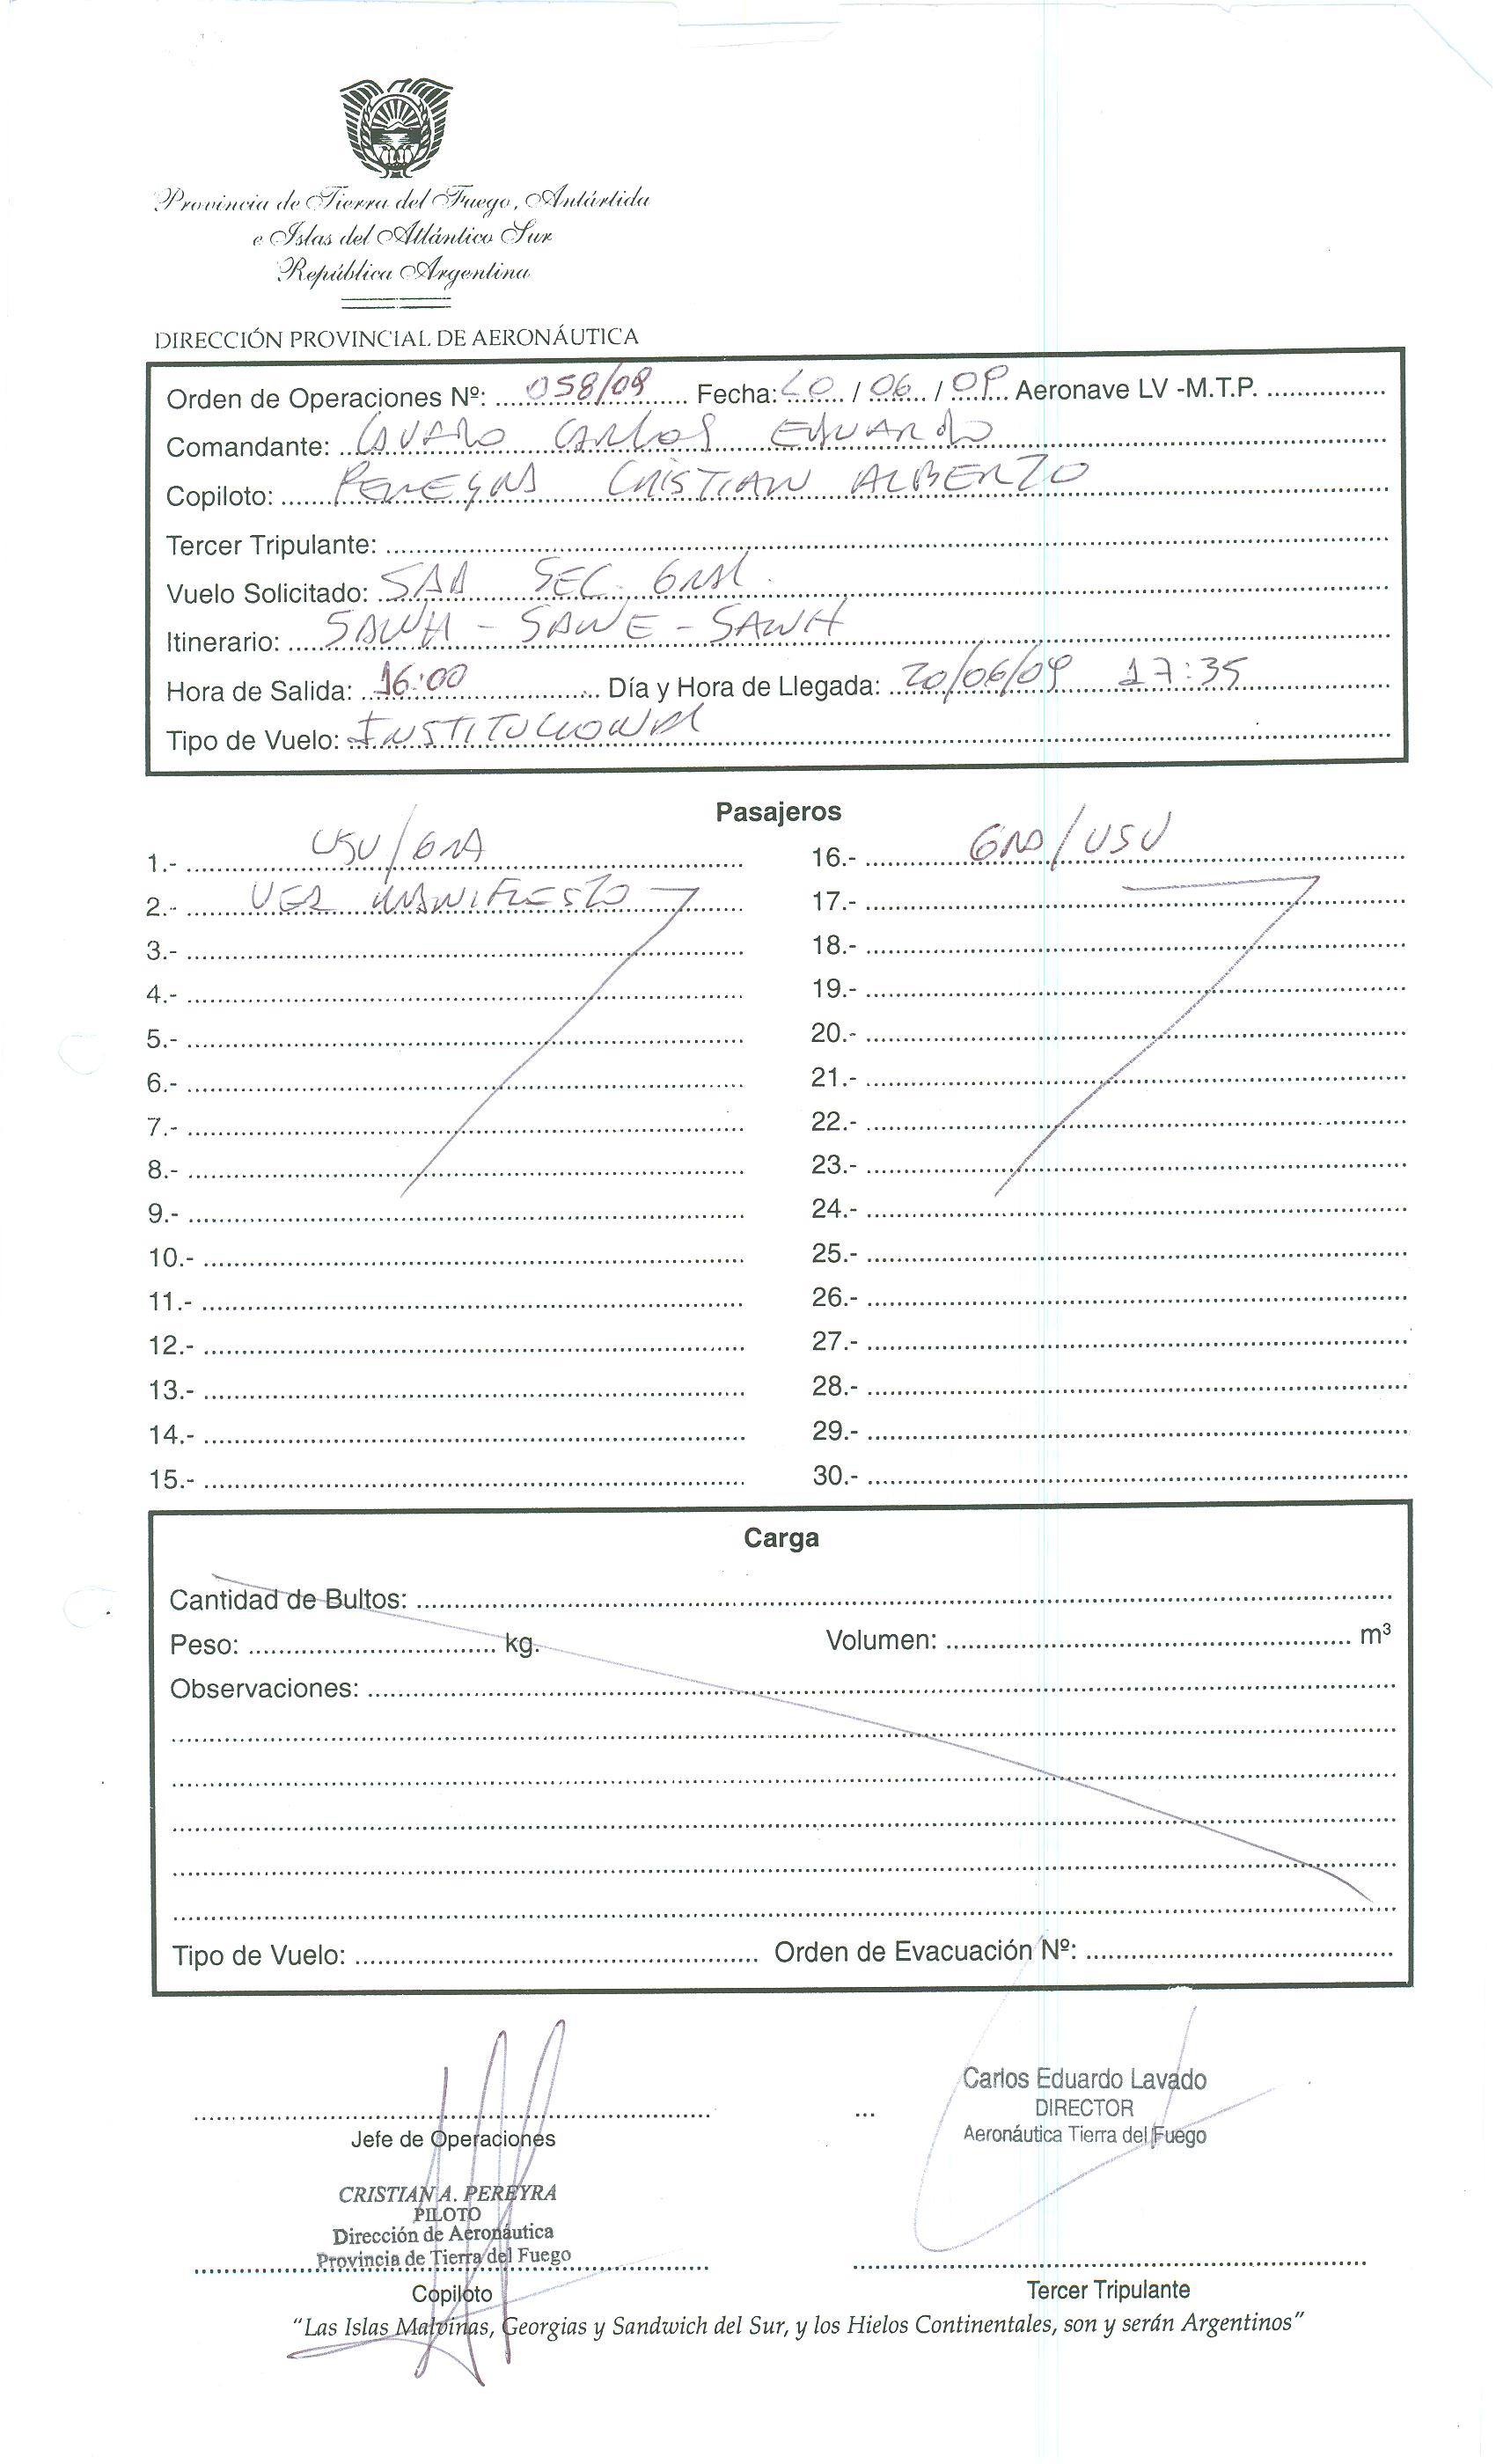 Provincia de Tierra del Fuego, Antártida
e Islas del Atlántico Sur
República Argentina
DIRECCIÓN PROVINCIAL DE AERONÁUTICA
Orden de Operaciones Nº: 058/09 Fecha: 20 / 06 / 09 Aeronave LV -M.T.P.
Comandante: LAVADO CARLOS EDUARDO
Copiloto: PEREYRA CRISTIAN ALBERTO
Tercer Tripulante:
Vuelo Solicitado: SAA SEC. GRAL.
Itinerario: SAWH - SAWE - SAWH
Hora de Salida: 16:00 Día y Hora de Llegada: 20/06/09 17:35
Tipo de Vuelo: INSTITUCIONAL
Pasajeros
1.- USU/GRA
2.- VER MANIFIESTO
3.-
4.-
5.-
6.-
7.-
8.-
9.-
10.-
11.-
12.-
13.-
14.-
15.-
16.- GRA/USU
17.-
18.-
19.-
20.-
21.-
22.-
23.-
24.-
25.-
26.-
27.-
28.-
29.-
30.-
Carga
Cantidad de Bultos:
Peso: kg. Volumen: m³
Observaciones:
Tipo de Vuelo: Orden de Evacuación Nº:
Jefe de Operaciones
Carlos Eduardo Lavado
DIRECTOR
Aeronáutica Tierra del Fuego
CRISTIAN A. PEREYRA
PILOTO
Dirección de Aeronáutica
Provincia de Tierra del Fuego
Copiloto
Tercer Tripulante
“Las Islas Malvinas, Georgias y Sandwich del Sur, y los Hielos Continentales, son y serán Argentinos”